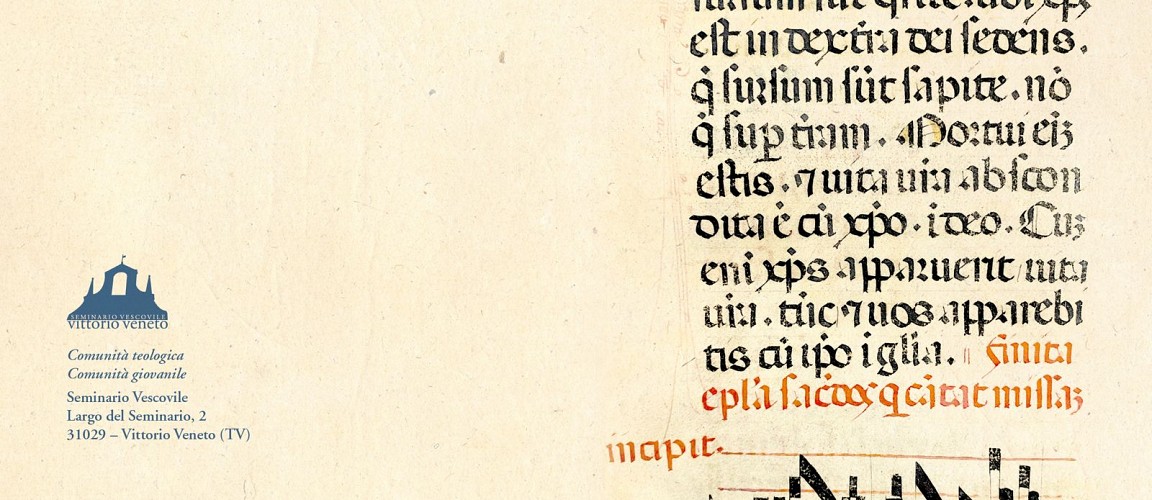 SEMINARIO VESCOVILE
vittorio veneto
Comunità teologica
Comunità giovanile
Seminario Vescovile
Largo del Seminario, 2
31029 – Vittorio Veneto (TV)
est in dextra dei sedens.
q̇ sursum sūt sapite. nō
q̇ suꝑ trām. Mortui eīꝫ
estis. ⁊ uita ura abscon
dita ē cū xp̄o. i deo. Cuꝫ
eni xp̄s apparuerit uita
ura. tūc ⁊ uos apparebi
tis cū ip̄o i glīa. Finita
epl̄a sac̄dos q cātat missaꝫ
incipit.